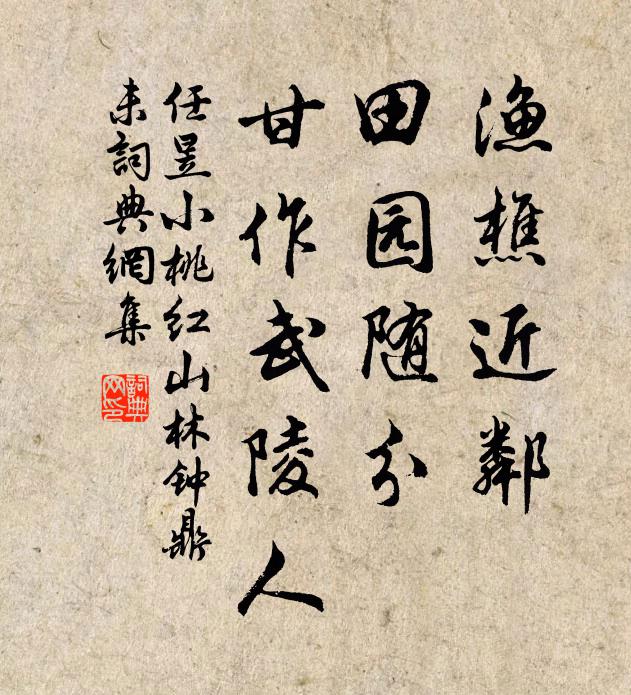 渔樵近鄰
田园随分
甘作武陵人
任昱小桃红山林钟鼎
未詞典網集
詞典网印